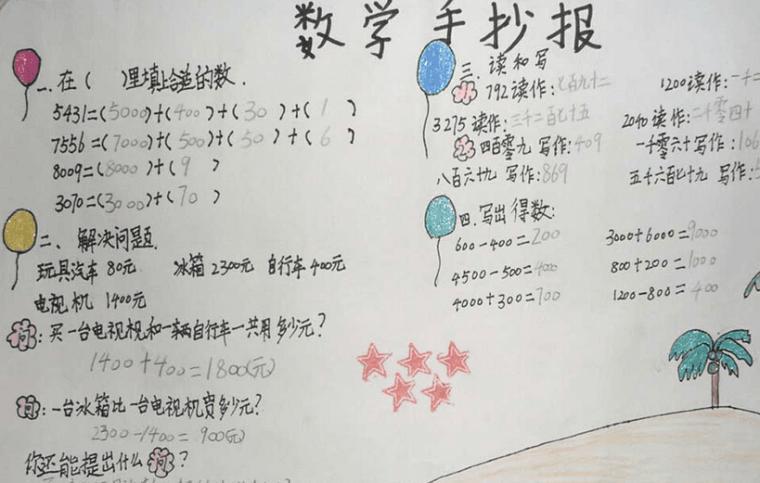 数学手抄报
一.在( )里填上合适的数.
5431=(5000)+(400)+(30)+(1)
7556=(7000)+(500)+(50)+(6)
8009=(8000)+(9)
3070=(3000)+(70)
二、解决问题.
玩具汽车 80元 冰箱 2300元 自行车 400元
电视机 1400元
问:买一台电视机和一辆自行车一共用多少元?
1400+400=1800(元)
问:一台冰箱比一台电视机贵多少元?
2300-1400=900(元)
你还能提出什么问?
三.读和写
1 792读作:七百九十二 1200读作:一千二
3275读作:三千二百七十五 2040读作:二千零四十
2 四百零九 写作:409 一千零六十写作:106
八百六十九 写作:869 五千六百七十九 写作:5
四.写出得数:
600-400=200 3000+6000=9000
4500-500=4000 800+200=1000
4000+300=700 1200-800=400